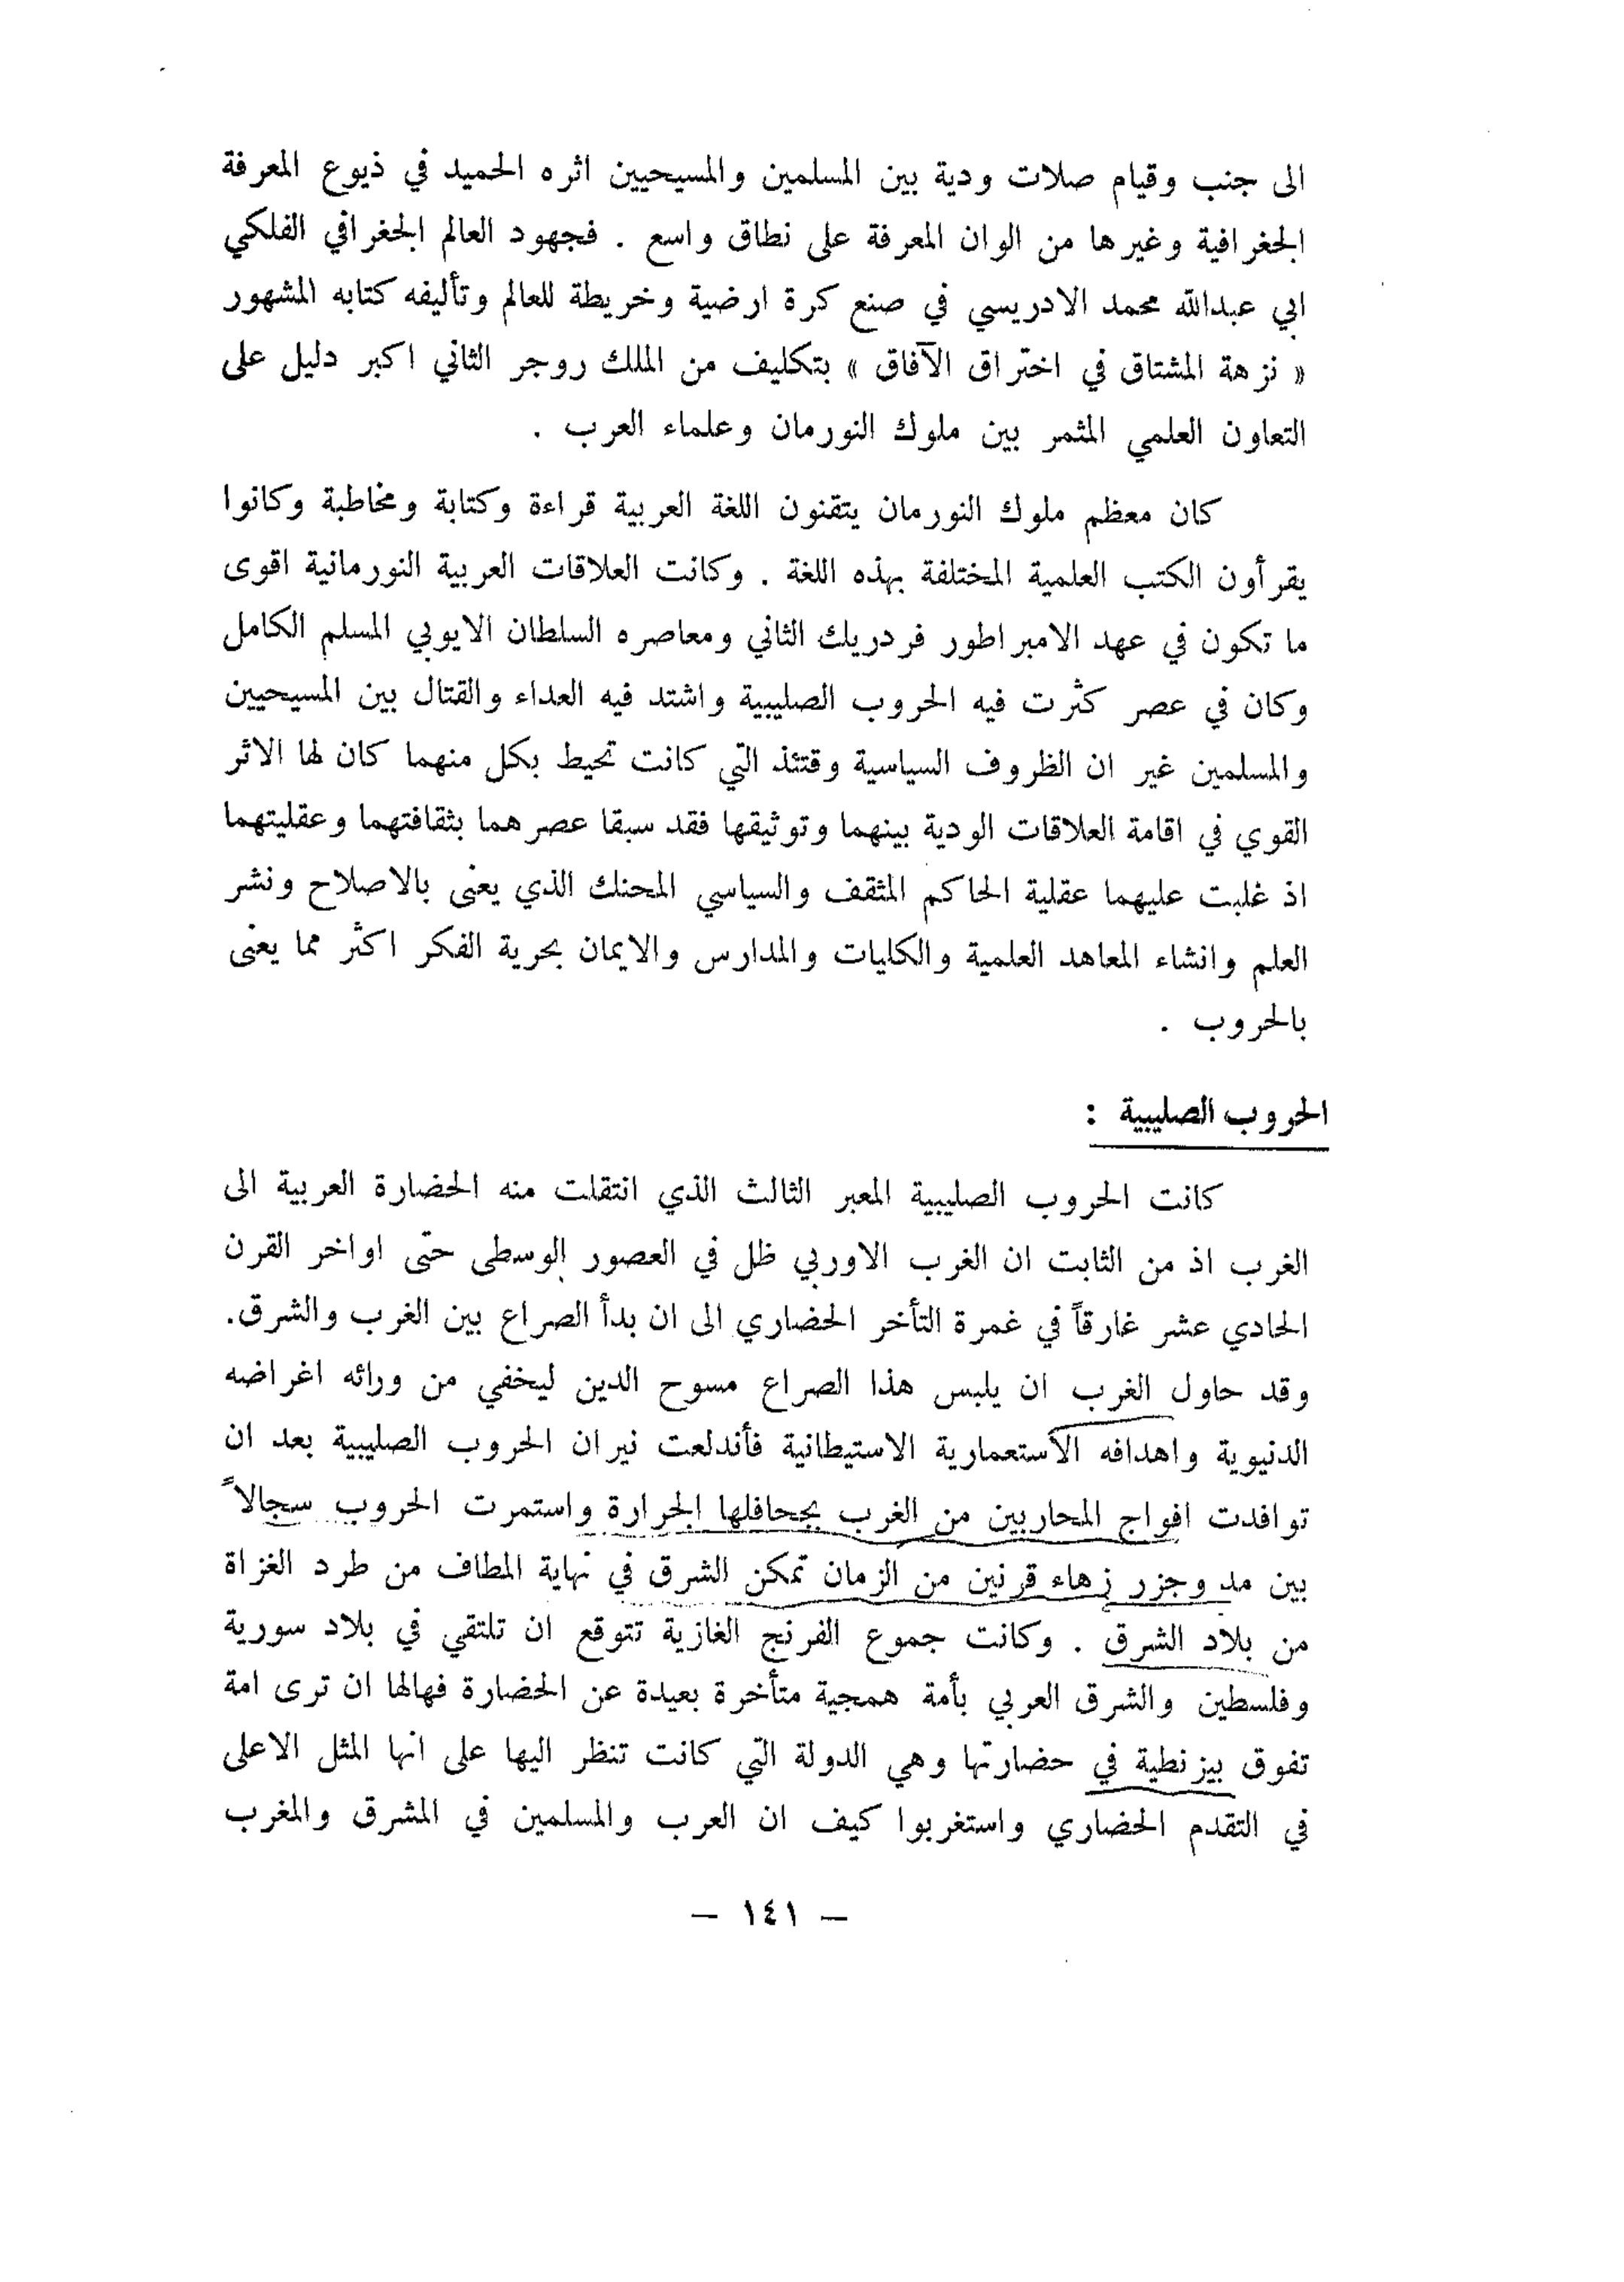 الى جنب وقيام صلات ودية بين المسلمين والمسيحيين اثره الحميد في ذيوع المعرفة
الجغرافية وغيرها من الوان المعرفة على نطاق واسع . فجهود العالم الجغرافي الفلكي
ابي عبدالله محمد الادريسي في صنع كرة ارضية وخريطة للعالم وتأليفه كتابه المشهور
« نزهة المشتاق في اختراق الآفاق » بتكليف من الملك روجر الثاني اكبر دليل على
التعاون العلمي المثمر بين ملوك النورمان وعلماء العرب .
كان معظم ملوك النورمان يتقنون اللغة العربية قراءة وكتابة ومخاطبة وكانوا
يقرأون الكتب العلمية المختلفة بهذه اللغة . وكانت العلاقات العربية النورمانية اقوى
ما تكون في عهد الامبراطور فردريك الثاني ومعاصره السلطان الايوبي المسلم الكامل
وكان في عصر كثرت فيه الحروب الصليبية واشتد فيه العداء والقتال بين المسيحيين
والمسلمين غير ان الظروف السياسية وقتئذ التي كانت تحيط بكل منهما كان لها الاثر
القوي في اقامة العلاقات الودية بينهما وتوثيقها فقد سبقا عصرهما بثقافتهما وعقليتهما
اذ غلبت عليهما عقلية الحاكم المثقف والسياسي المحنك الذي يعنى بالاصلاح ونشر
العلم وانشاء المعاهد العلمية والكليات والمدارس والايمان بحرية الفكر اكثر مما يعنى
بالحروب .
الحروب الصليبية :
كانت الحروب الصليبية المعبر الثالث الذي انتقلت منه الحضارة العربية الى
الغرب اذ من الثابت ان الغرب الاوربي ظل في العصور الوسطى حتى اواخر القرن
الحادي عشر غارقاً في غمرة التأخر الحضاري الى ان بدأ الصراع بين الغرب والشرق.
وقد حاول الغرب ان يلبس هذا الصراع مسوح الدين ليخفي من ورائه اغراضه
الدنيوية واهدافه الاستعمارية الاستيطانية فأندلعت نيران الحروب الصليبية بعد ان
توافدت افواج المحاربين من الغرب بجحافلها الجرارة واستمرت الحروب سجالاً
بين مد وجزر زهاء قرنين من الزمان تمكن الشرق في نهاية المطاف من طرد الغزاة
من بلاد الشرق . وكانت جموع الفرنج الغازية تتوقع ان تلتقي في بلاد سورية
وفلسطين والشرق العربي بأمة همجية متأخرة بعيدة عن الحضارة فهالها ان ترى امة
تفوق بيزنطية في حضارتها وهي الدولة التي كانت تنظر اليها على انها المثل الاعلى
في التقدم الحضاري واستغربوا كيف ان العرب والمسلمين في المشرق والمغرب
— ١٤١ —